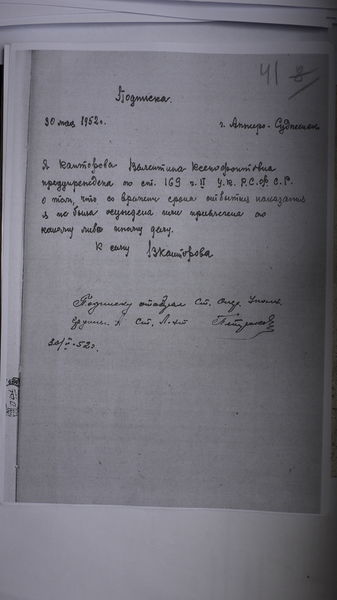 41 8
Подписка.
30 мая 1952г. г. Анжеро-Судженск
Я Канторова Валентина Ксенофонтовна
предупреждена по ст. 169 ч. II У.К. Р.С.Ф.С.Р.
о том, что со времени срока отбытия наказания
я не была осуждена или привлечена по
какому либо иному делу.
К сему ВКанторова
Подписку отобрал Ст. Опер. Уполн.
Ст. Л-нт
30/V-52г.